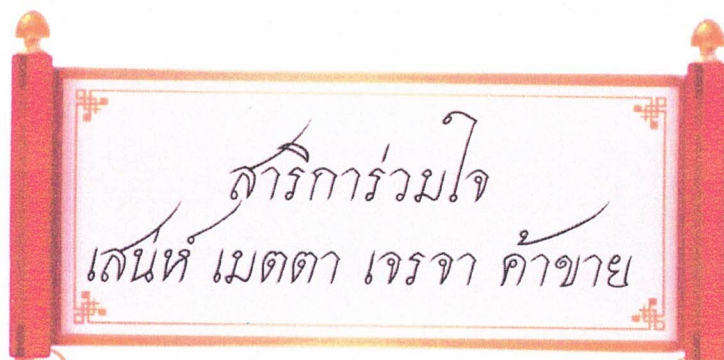 สาริการ่วมใจ
เสน่ห์ เมตตา เจรจา ค้าขาย